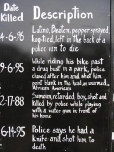 Date Killed
Description
4-6-96
Latino, Beaten, pepper-sprayed,
hogtied, left in the back of a
police van to die
9-6-95
While riding his bike past
a drug bust in a park, police
chased after him and shot him
point blank in the head, an unarmed
African American.
2-17-88
Samoan, retarded boy, shot and
killed by police while playing
with a water gun in front of
his home
6-14-95
Police says he had a
knife and shot him to
death